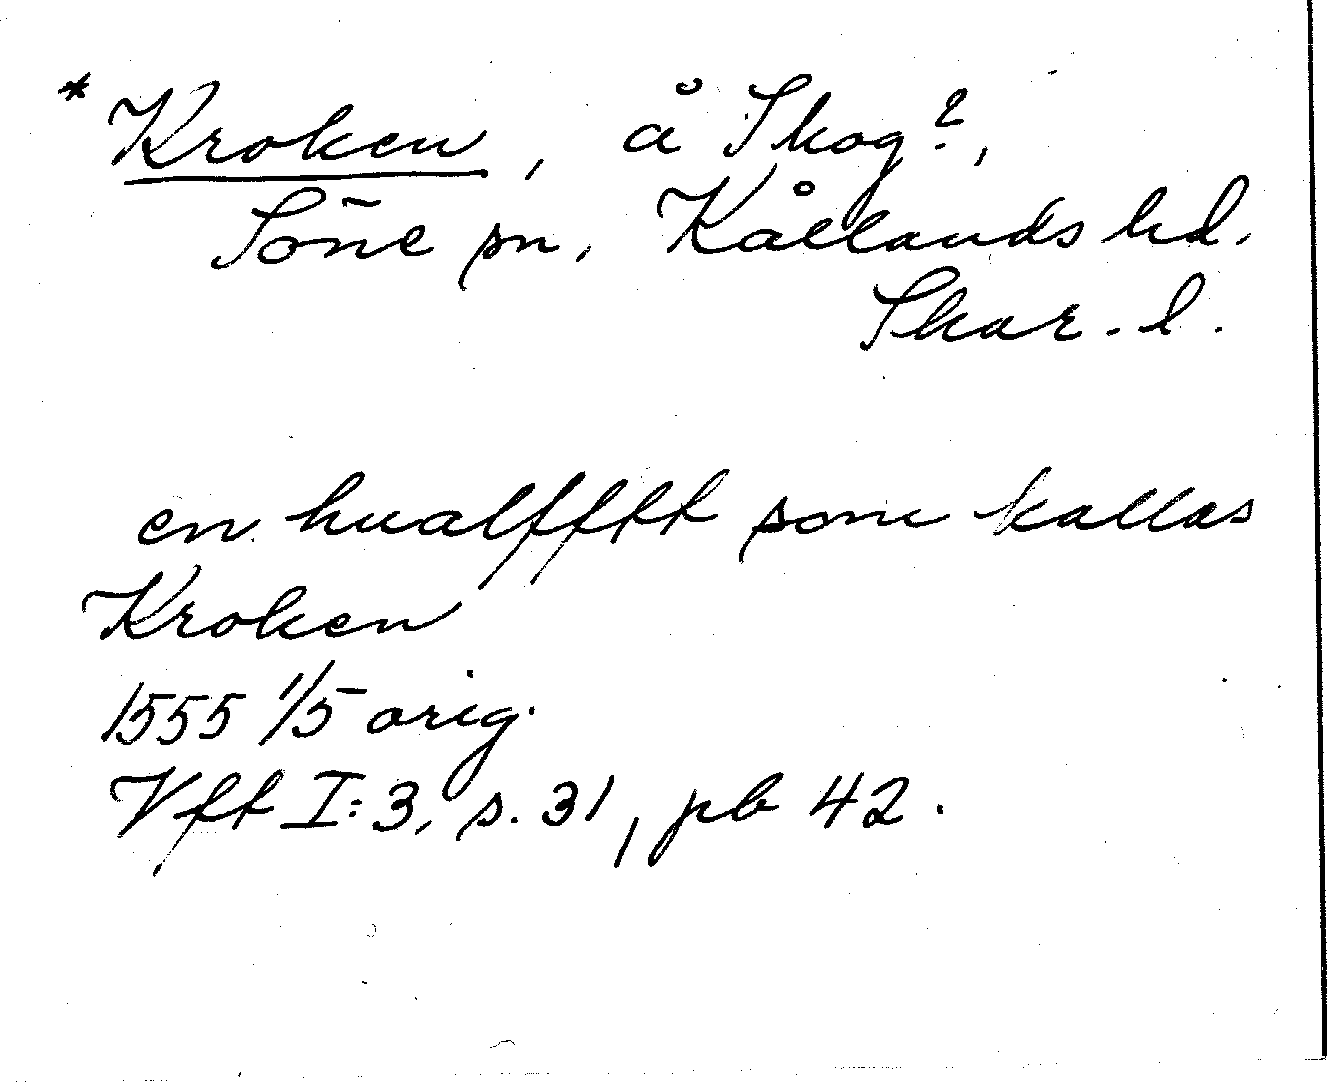 * Kroken, å Skog?,
Söne sn, Kållands hd.
Skar. l.
en hualfftt som kallas
Kroken
1555 1/5 orig.
Vftt I:3, s. 31, pb 42.